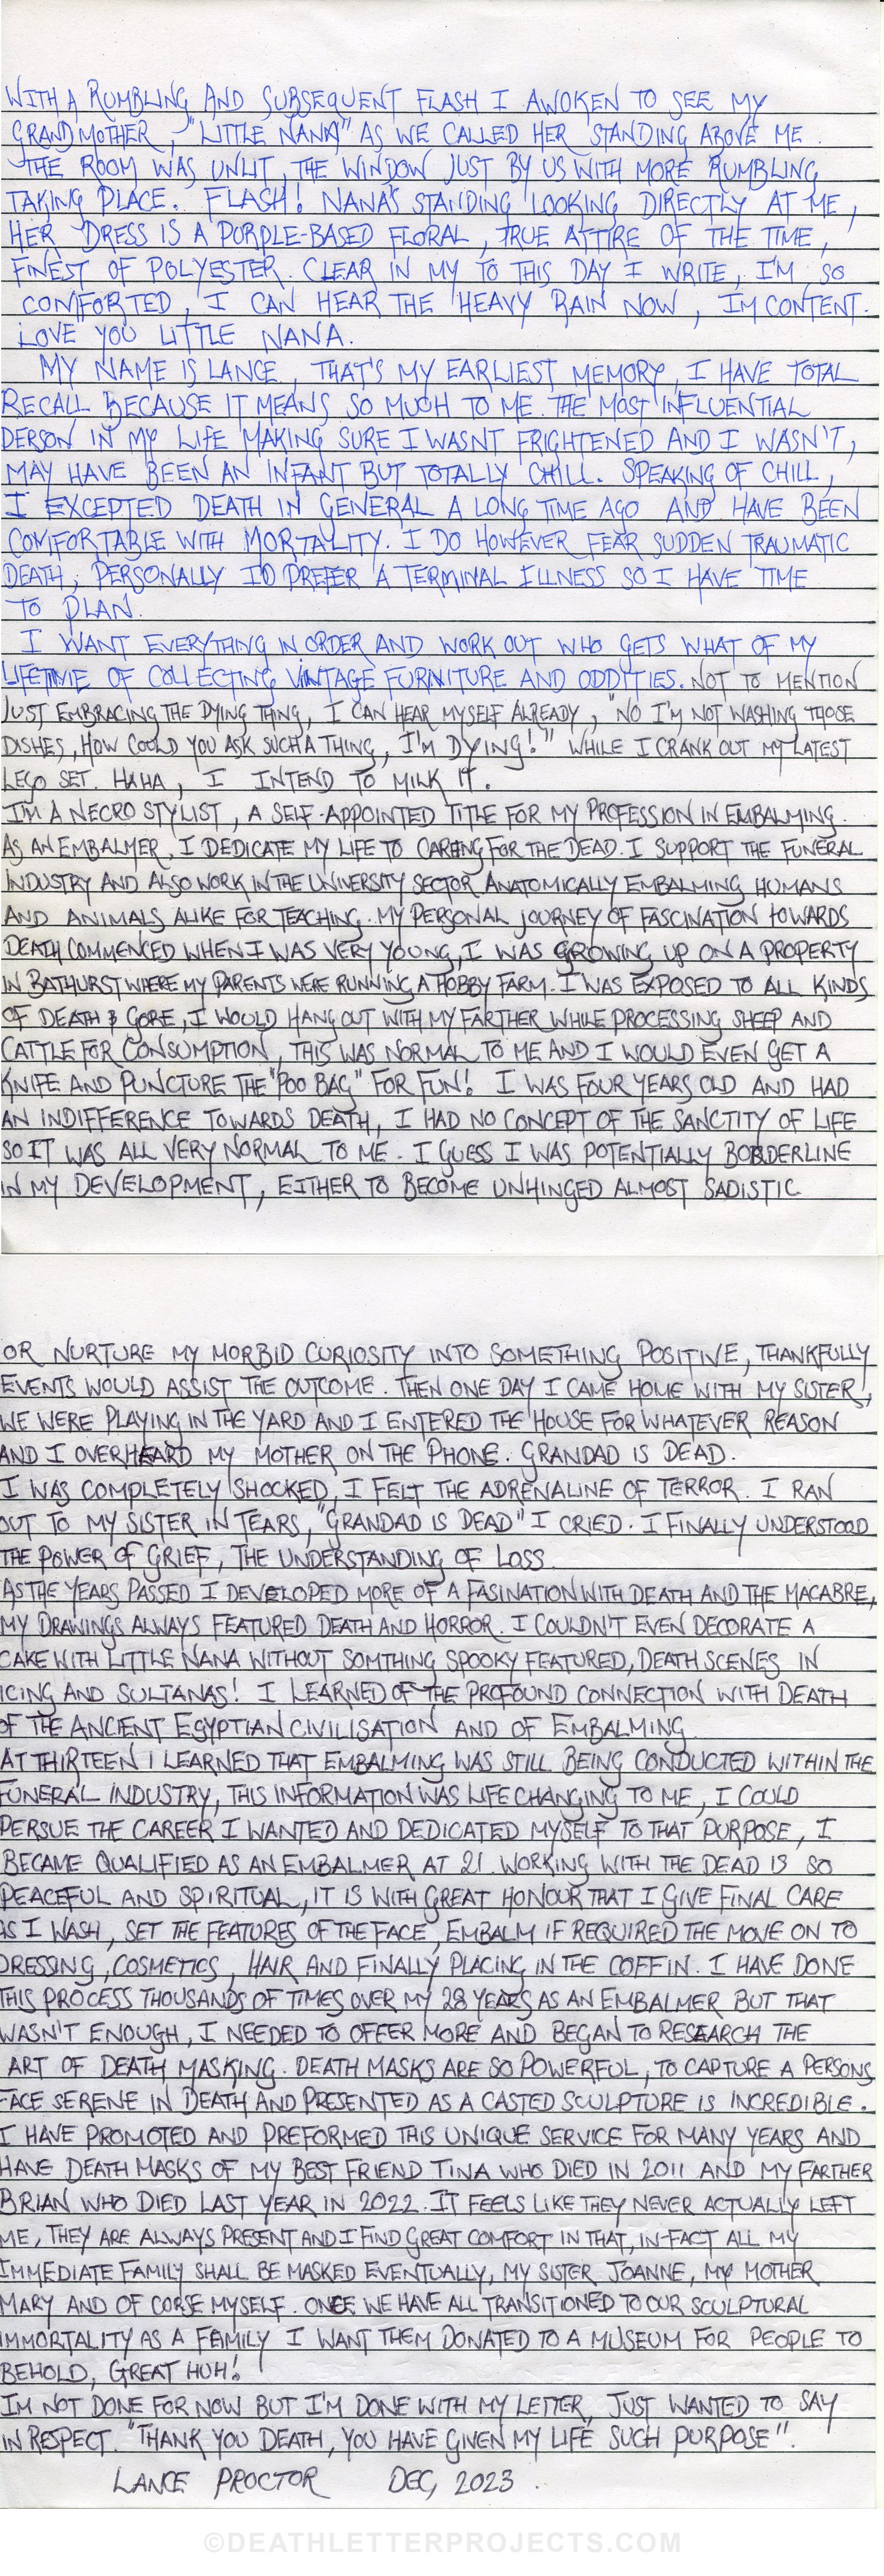 WITH A RUMBLING AND SUBSEQUENT FLASH I AWOKEN TO SEE MY
GRANDMOTHER, "LITTLE NANA" AS WE CALLED HER STANDING ABOVE ME.
THE ROOM WAS UNLIT, THE WINDOW JUST BY US WITH MORE RUMBLING
TAKING PLACE. FLASH! NANA'S STANDING LOOKING DIRECTLY AT ME,
HER DRESS IS A PURPLE-BASED FLORAL, TRUE ATTIRE OF THE TIME,
FINEST OF POLYESTER. CLEAR IN MY TO THIS DAY I WRITE, I'M SO
COMFORTED, I CAN HEAR THE HEAVY RAIN NOW, IM CONTENT.
LOVE YOU LITTLE NANA.
MY NAME IS LANCE, THAT'S MY EARLIEST MEMORY, I HAVE TOTAL
RECALL BECAUSE IT MEANS SO MUCH TO ME. THE MOST INFLUENTIAL
PERSON IN MY LIFE MAKING SURE I WASNT FRIGHTENED AND I WASN'T,
MAY HAVE BEEN AN INFANT BUT TOTALLY CHILL. SPEAKING OF CHILL,
I EXCEPTED DEATH IN GENERAL A LONG TIME AGO AND HAVE BEEN
COMFORTABLE WITH MORTALITY. I DO HOWEVER FEAR SUDDEN TRAUMATIC
DEATH, PERSONALLY I'D PREFER A TERMINAL ILLNESS SO I HAVE TIME
TO PLAN.
I WANT EVERYTHING IN ORDER AND WORK OUT WHO GETS WHAT OF MY
LIFETIME OF COLLECTING VINTAGE FURNITURE AND ODDITIES. NOT TO MENTION
JUST EMBRACING THE DYING THING, I CAN HEAR MYSELF ALREADY, "NO I'M NOT WASHING THOSE
DISHES, HOW COULD YOU ASK SUCH A THING, I'M DYING!" WHILE I CRANK OUT MY LATEST
LEGO SET. HAHA, I INTEND TO MILK IT.
I'M A NECRO STYLIST, A SELF-APPOINTED TITLE FOR MY PROFESSION IN EMBALMING.
AS AN EMBALMER, I DEDICATE MY LIFE TO CARING FOR THE DEAD. I SUPPORT THE FUNERAL
INDUSTRY AND ALSO WORK IN THE UNIVERSITY SECTOR ANATOMICALLY EMBALMING HUMANS
AND ANIMALS ALIKE FOR TEACHING. MY PERSONAL JOURNEY OF FASCINATION TOWARDS
DEATH COMMENCED WHEN I WAS VERY YOUNG, I WAS GROWING UP ON A PROPERTY
IN BATHURST WHERE MY PARENTS WERE RUNNING A HOBBY FARM. I WAS EXPOSED TO ALL KINDS
OF DEATH & GORE, I WOULD HANG OUT WITH MY FARTHER WHILE PROCESSING SHEEP AND
CATTLE FOR CONSUMPTION, THIS WAS NORMAL TO ME AND I WOULD EVEN GET A
KNIFE AND PUNCTURE THE "POO BAG" FOR FUN! I WAS FOUR YEARS OLD AND HAD
AN INDIFFERENCE TOWARDS DEATH, I HAD NO CONCEPT OF THE SANCTITY OF LIFE
SO IT WAS ALL VERY NORMAL TO ME. I GUESS I WAS POTENTIALLY BORDERLINE
IN MY DEVELOPMENT, EITHER TO BECOME UNHINGED ALMOST SADISTIC
OR NURTURE MY MORBID CURIOSITY INTO SOMETHING POSITIVE, THANKFULLY
EVENTS WOULD ASSIST THE OUTCOME. THEN ONE DAY I CAME HOME WITH MY SISTER,
WE WERE PLAYING IN THE YARD AND I ENTERED THE HOUSE FOR WHATEVER REASON
AND I OVERHEARD MY MOTHER ON THE PHONE. GRANDAD IS DEAD.
I WAS COMPLETELY SHOCKED, I FELT THE ADRENALINE OF TERROR. I RAN
OUT TO MY SISTER IN TEARS, "GRANDAD IS DEAD" I CRIED. I FINALLY UNDERSTOOD
THE POWER OF GRIEF, THE UNDERSTANDING OF LOSS.
AS THE YEARS PASSED I DEVELOPED MORE OF A FASINATION WITH DEATH AND THE MACABRE,
MY DRAWINGS ALWAYS FEATURED DEATH AND HORROR. I COULDN'T EVEN DECORATE A
CAKE WITH LITTLE NANA WITHOUT SOMTHING SPOOKY FEATURED, DEATH SCENES IN
ICING AND SULTANAS! I LEARNED OF THE PROFOUND CONNECTION WITH DEATH
OF THE ANCIENT EGYPTIAN CIVILISATION AND OF EMBALMING.
AT THIRTEEN I LEARNED THAT EMBALMING WAS STILL BEING CONDUCTED WITHIN THE
FUNERAL INDUSTRY, THIS INFORMATION WAS LIFE CHANGING TO ME, I COULD
PERSUE THE CAREER I WANTED AND DEDICATED MYSELF TO THAT PURPOSE, I
BECAME QUALIFIED AS AN EMBALMER AT 21. WORKING WITH THE DEAD IS SO
PEACEFUL AND SPIRITUAL, IT IS WITH GREAT HONOUR THAT I GIVE FINAL CARE
AS I WASH, SET THE FEATURES OF THE FACE, EMBALM IF REQUIRED THE MOVE ON TO
DRESSING, COSMETICS, HAIR AND FINALLY PLACING IN THE COFFIN. I HAVE DONE
THIS PROCESS THOUSANDS OF TIMES OVER MY 28 YEARS AS AN EMBALMER BUT THAT
WASN'T ENOUGH, I NEEDED TO OFFER MORE AND BEGAN TO RESEARCH THE
ART OF DEATH MASKING. DEATH MASKS ARE SO POWERFUL, TO CAPTURE A PERSONS
FACE SERENE IN DEATH AND PRESENTED AS A CASTED SCULPTURE IS INCREDIBLE.
I HAVE PROMOTED AND PREFORMED THIS UNIQUE SERVICE FOR MANY YEARS AND
HAVE DEATH MASKS OF MY BEST FRIEND TINA WHO DIED IN 2011 AND MY FARTHER
BRIAN WHO DIED LAST YEAR IN 2022. IT FEELS LIKE THEY NEVER ACTUALLY LEFT
ME, THEY ARE ALWAYS PRESENT AND I FIND GREAT COMFORT IN THAT, IN-FACT ALL MY
IMMEDIATE FAMILY SHALL BE MASKED EVENTUALLY, MY SISTER JOANNE, MY MOTHER
MARY AND OF CORSE MYSELF. ONCE WE HAVE ALL TRANSITIONED TO OUR SCULPTURAL
IMMORTALITY AS A FAMILY I WANT THEM DONATED TO A MUSEUM FOR PEOPLE TO
BEHOLD, GREAT HUH!
IM NOT DONE FOR NOW BUT I'M DONE WITH MY LETTER, JUST WANTED TO SAY
IN RESPECT. "THANK YOU DEATH, YOU HAVE GIVEN MY LIFE SUCH PURPOSE".
LANCE PROCTOR DEC, 2023.
©DEATHLETTERPROJECTS.COM